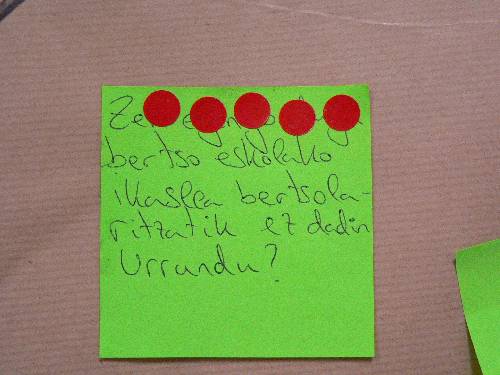 bertso eskolako
ikaslea bertsola-
ritzatik ez dadin
urrundu?